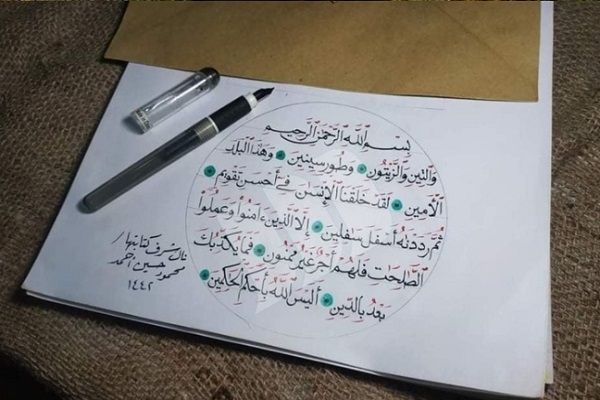 بِسْمِ اللَّهِ الرَّحْمَٰنِ الرَّحِيمِ
وَالتِّينِ وَالزَّيْتُونِ وَطُورِ سِينِينَ وَهَذَا الْبَلَدِ
الْأَمِينِ لَقَدْ خَلَقْنَا الْإِنْسَٰنَ فِي أَحْسَنِ تَقْوِيمٍ
ثُمَّ رَدَدْنَٰهُ أَسْفَلَ سَٰفِلِينَ إِلَّا الَّذِينَ ءَامَنُوا وَعَمِلُوا
الصَّٰلِحَٰتِ فَلَهُمْ أَجْرٌ غَيْرُ مَمْنُونٍ فَمَا يُكَذِّبُكَ
بَعْدُ بِالدِّينِ أَلَيْسَ اللَّهُ بِأَحْكَمِ الْحَٰكِمِينَ
نال شرف كتابتها/
محمود حسين أحمد
١٤٤٢